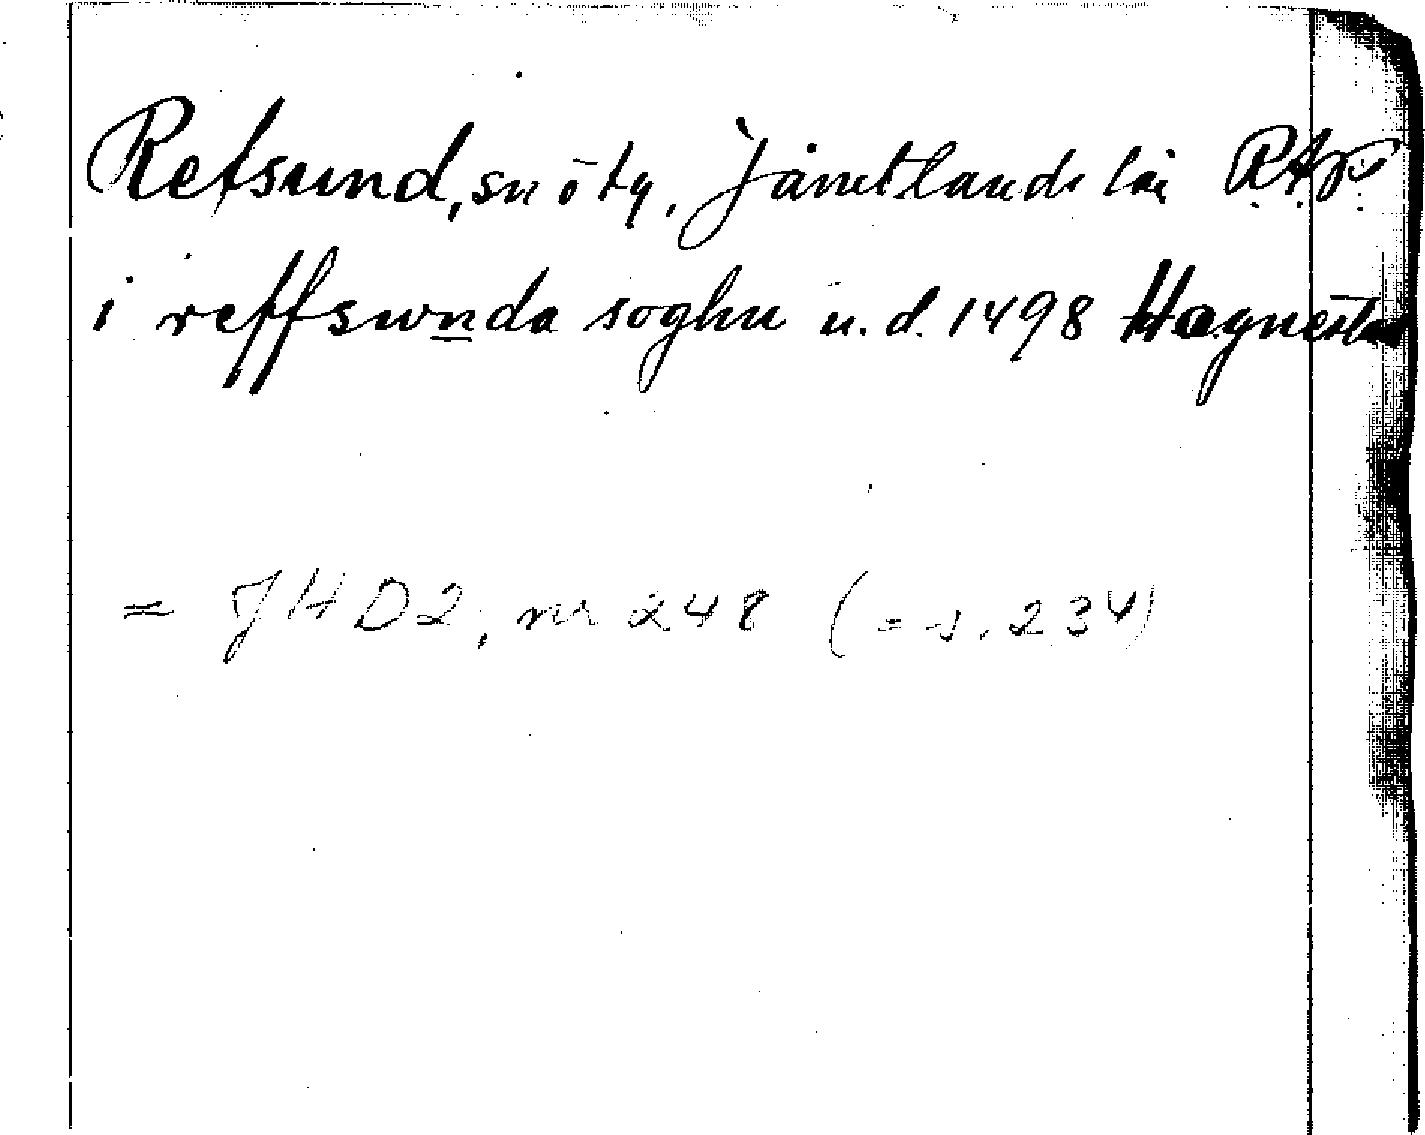 Refsund, sn ö ty, Jämtlands län RAp
i reffswnda soghn u.d. 1498 Hagnesta
= JHD2, nr 248 (= s. 234)